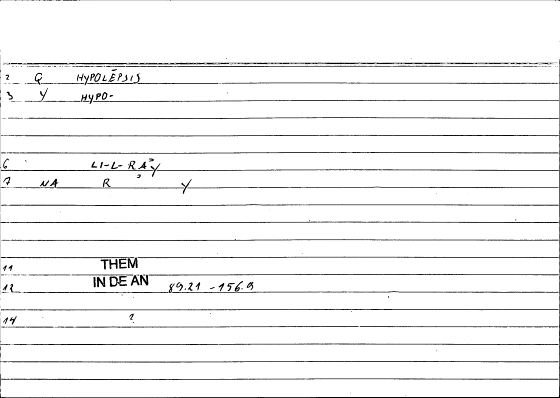 2 Q HYPOLĒPSIS
3 Y HYPO-
6 LI-L-RA'Y
7 NA R ' Y
11 THEM
12 IN DE AN 89.21 - 156.9
14 ?